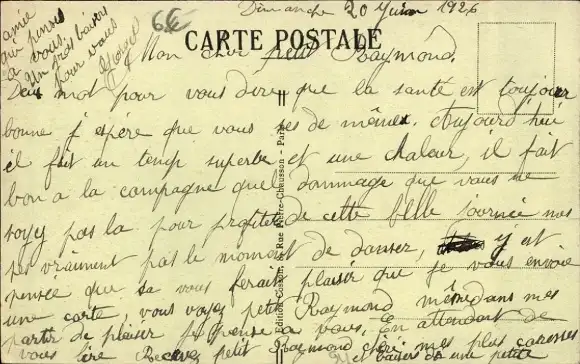 Dimanche 20 Juin 1926
6€
CARTE POSTALE
Mon cher petit Raymond.
Deux mot pour vous dire que la santé est toujour
bonne j'espére que vous de mêmes. Aujourd'hui
il fait un temp superbe et une chaleur, il fait
bon a la campagne quel dommage que vous ne
soyez pas la pour profiter de cette belle journée nos
pas vraiment pas le moment de danser, y et
pensee que sa vous ferait plaisir que je vous envoie
une carte, vous voyez petit Raymond même dans mes
partir de plaiser je pense a vous. En attendant de
vous lire Recevez petit Raymond cheri mes plus caresses
et baisers d'une petite
amie
qui pense
a vous.
Un gros baiser
pour vous
Edition Rue Pierre-Chausson - Paris